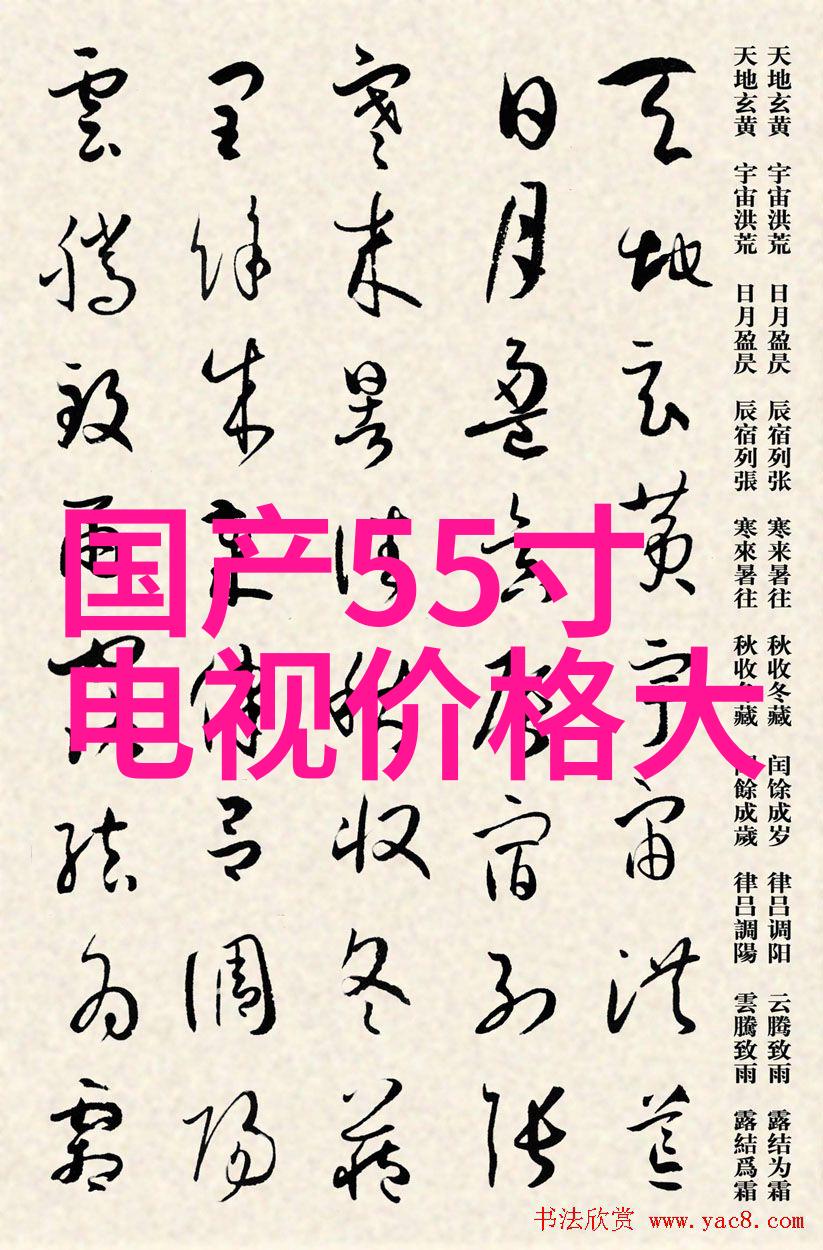 国产55寸
电视价格大
天地玄黄 宇宙洪荒 日月盈昃 辰宿列张 寒来暑往 秋收冬藏 闰馀成岁 律吕调阳 云腾致雨 露结为霜
天地玄黄 宇宙洪荒 日月盈昃 辰宿列張 寒來暑往 秋收冬藏 閏餘成歲 律吕調陽 雲騰致雨 露結爲霜
天地玄黄宇宙洪荒
日月盈昃辰宿列張
寒来暑往秋收冬藏
閏餘成歲律吕調陽
雲騰致雨露結為霜
书法欣赏 www.yac8.com